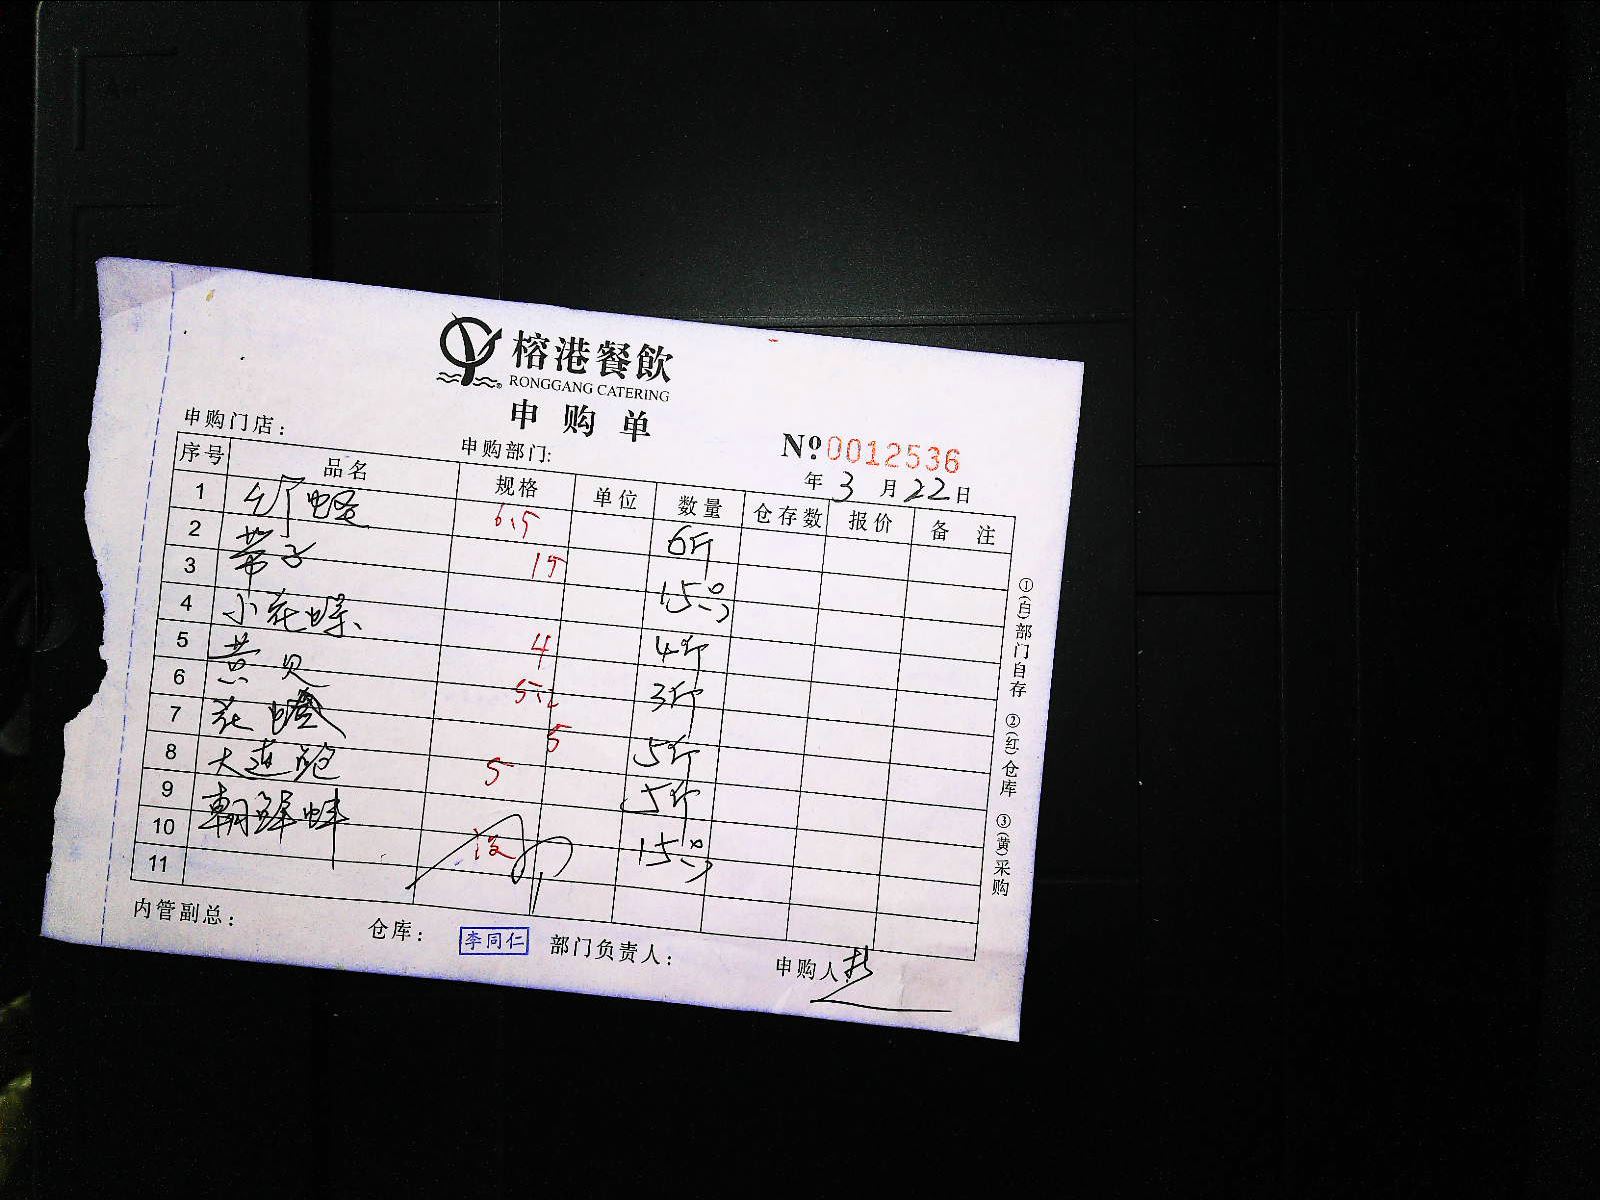 榕港餐飲
RONGGANG CATERING
申购单
申购门店:
申购部门:
№0012536
年3月22日
序号 品名 规格 单位 数量 仓存数 报价 备注
1 6.5 6斤
2 带子 15 15只
3
4 小花螺 4 4斤
5 黄贝 5.2 3斤
6
7 花 5 5斤
8 大连鲍 5 5斤
9 朝鲜蚌
10 没 15只
11
①(白)部门自存 ②(红)仓库 ③(黄)采购
内管副总: 仓库: 李同仁 部门负责人: 申购人